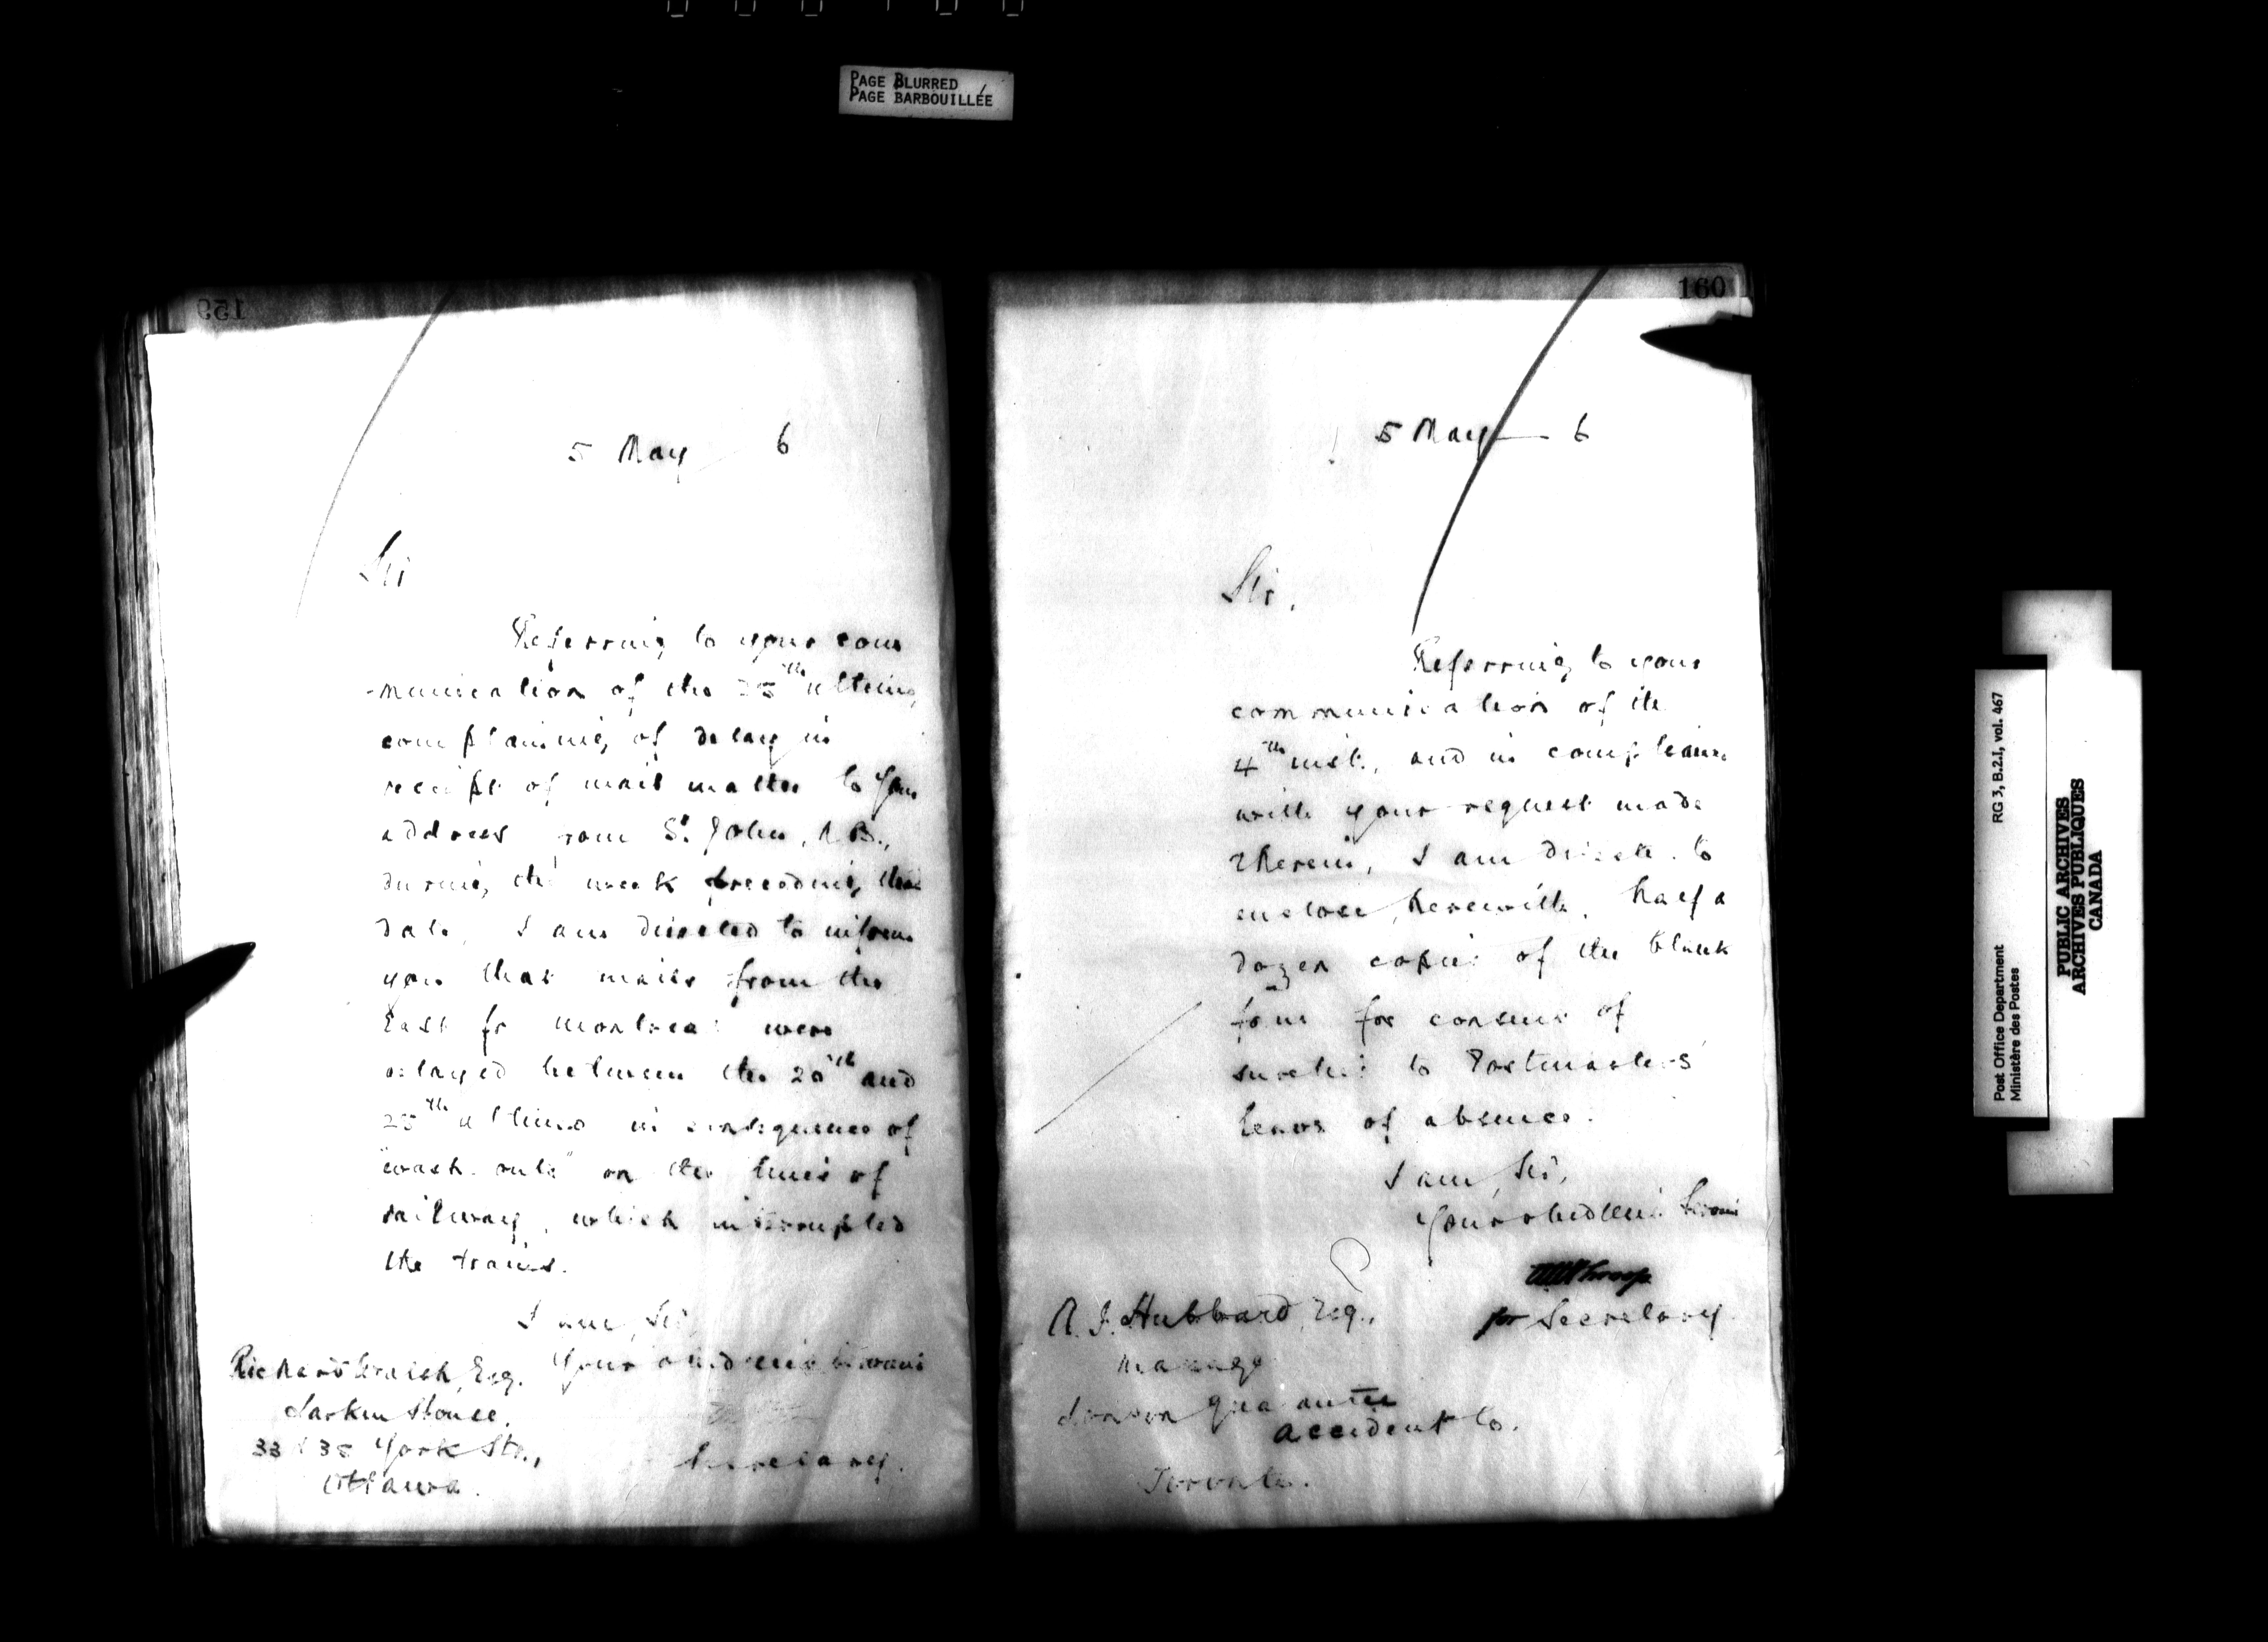 PAGE BLURRED
PAGE BARBOUILLÉE
159
5 May 6
Sir
Referring to your com
-munication of the 25th ultimo,
complaining of delay in
receipt of mail matter to your
address from St. John, N.B.,
during the week preceding that
date, I am directed to inform
you that mails from the
East for Montreal were
delayed between the 20th and
25th ultimo in consequence of
"wash-outs" on the lines of
railway, which interrupted
the trains.
I am, Sir,
Your obedient Servant
Secretary.
Richard Esq.
Larkin House,
33 & 35 York Str.,
Ottawa.
160
5 May 6
Sir,
Referring to your
communication of the
4th inst., and in compliance
with your request made
therein, I am directed to
enclose, herewith, half a
dozen copies of the blank
form for consent of
sureties to Postmasters'
leave of absence.
I am, Sir,
Your obedient Servant
for Secretary
Hubbard, Esq.,
Manager
London Guarantee
Accident Co.
Toronto.
RG 3, B.2.I, vol. 467
Post Office Department
Ministère des Postes
PUBLIC ARCHIVES
ARCHIVES PUBLIQUES
CANADA